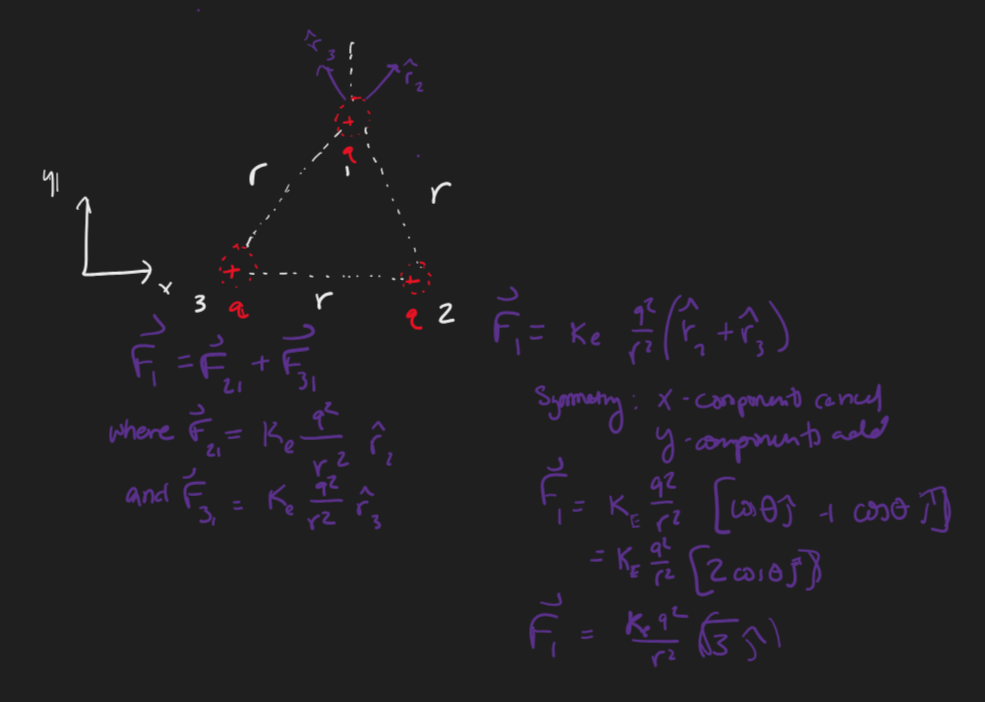 r̂₃
r̂₂
+
q
1
r
r
y
x
+
+
r
3
q
q
2
F⃗₁ = F⃗₂₁ + F⃗₃₁
where F⃗₂₁ = Ke q²/r² r̂₂
and F⃗₃₁ = Ke q²/r² r̂₃
F⃗₁ = Ke q²/r² (r̂₂ + r̂₃)
Symmetry: x-components cancel
y-components add
F⃗₁ = K_E q²/r² [cosθ ĵ + cosθ ĵ]
= K_E q²/r² [2 cosθ ĵ]
F⃗₁ = Ke q²/r² (√3 ĵ)